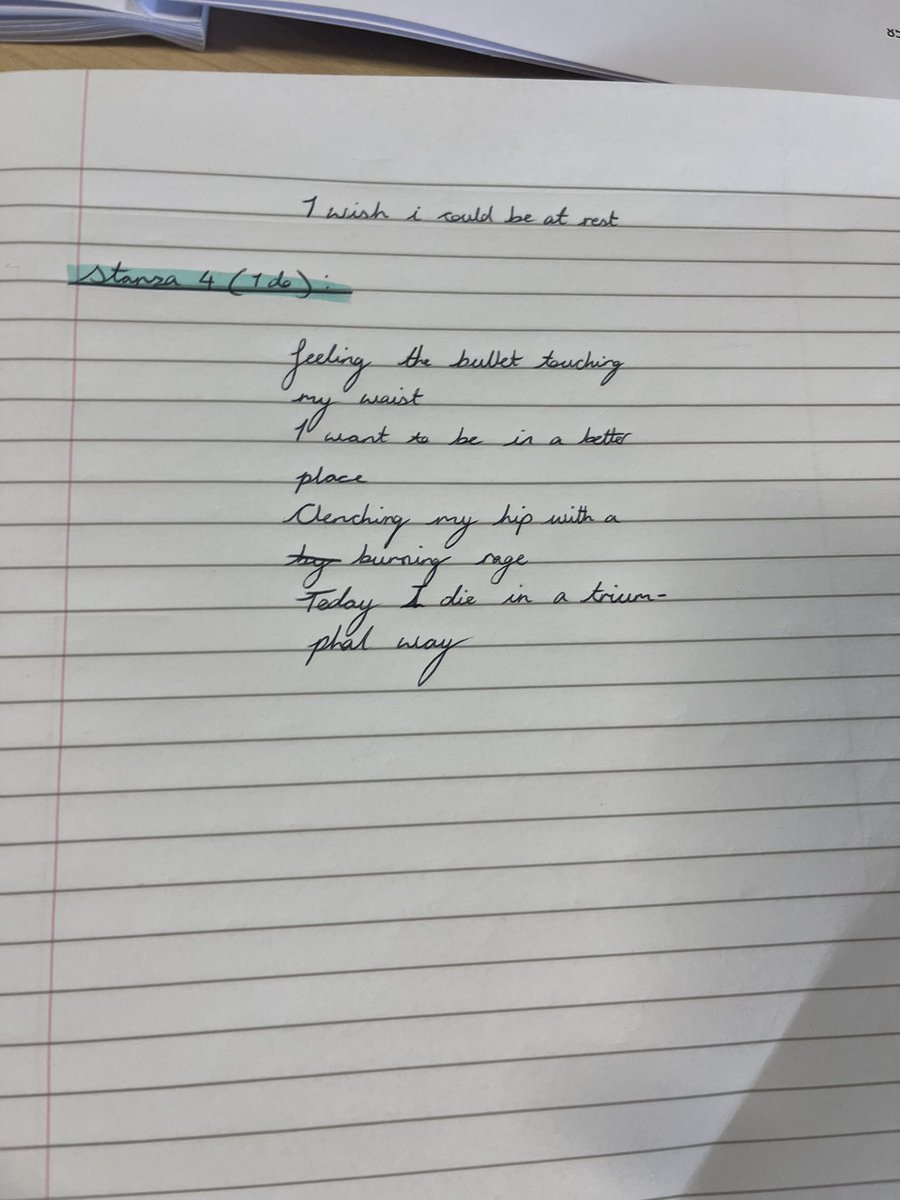 I wish i could be at rest
Stanza 4 (I do):
feeling the bullet touching
my waist
I want to be in a better
place
Clenching my hip with a
burning rage
Today I die in a trium-
phal way